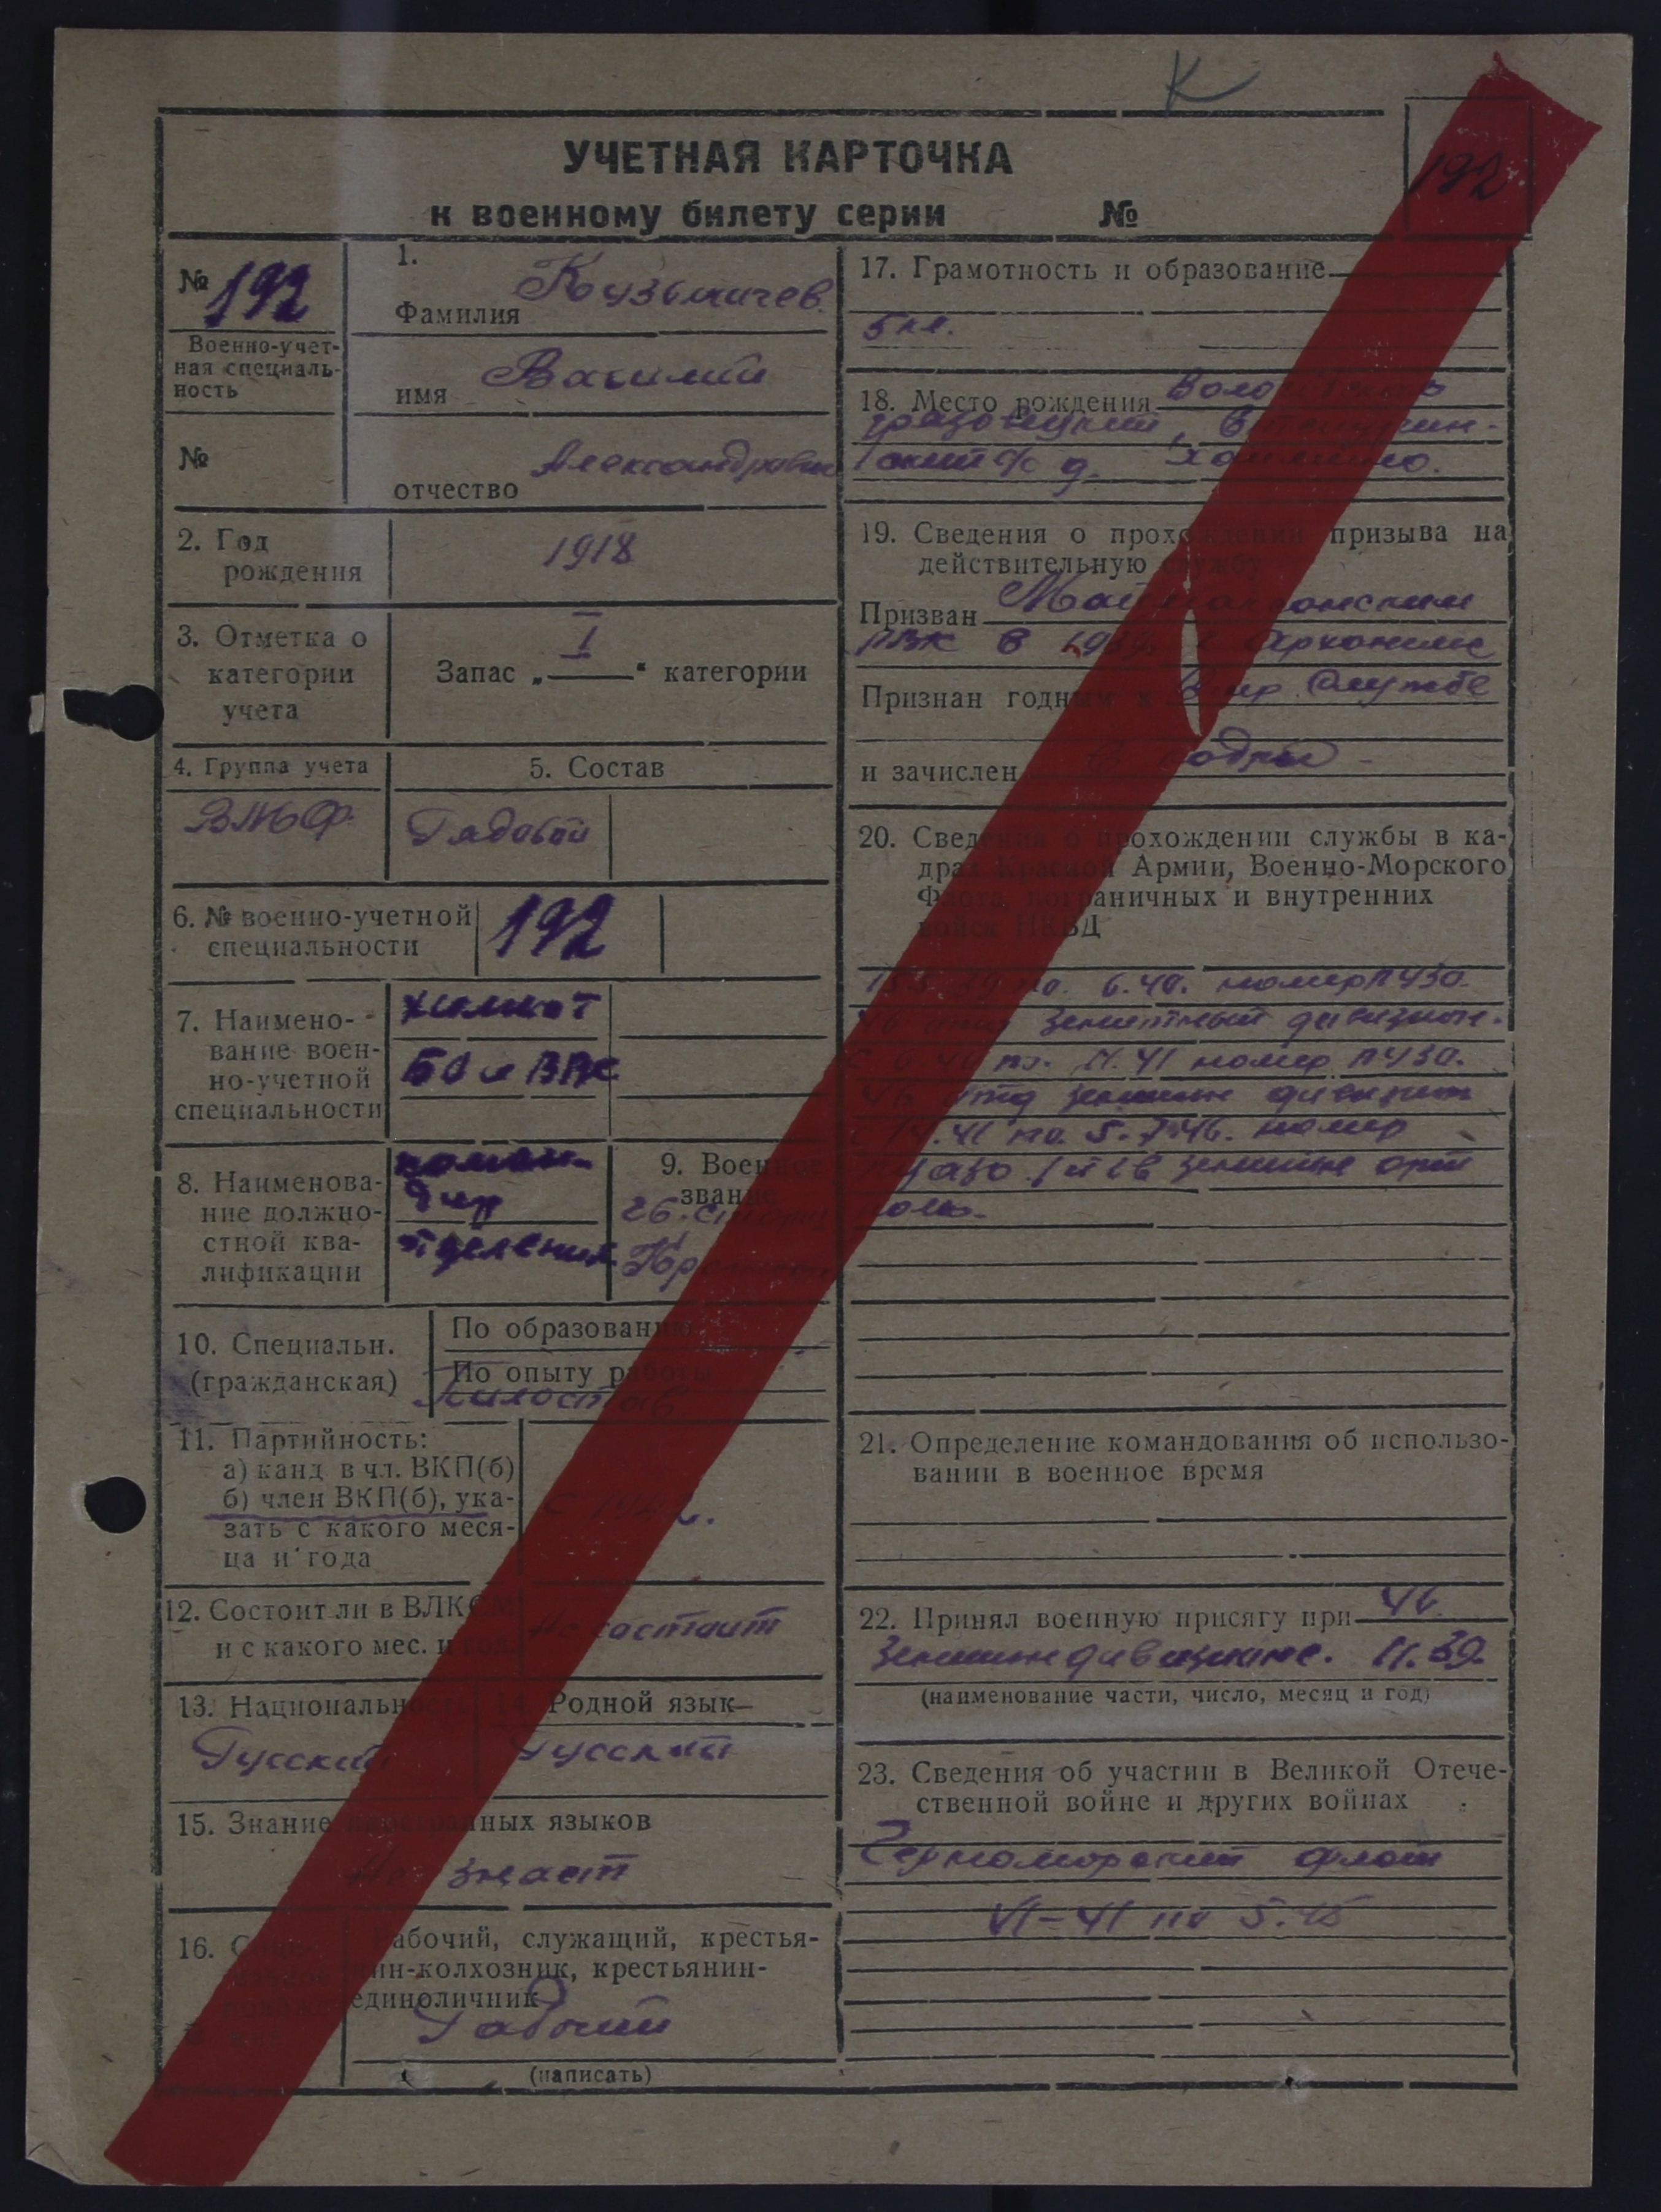 К
УЧЕТНАЯ КАРТОЧКА
192
к военному билету серии №
№ 192
Военно-учет-
ная специаль-
ность
№
1.
Фамилия Кузьмичев
имя Василий
отчество Александрович
2. Год
рождения
1918
3. Отметка о
категории
учета
Запас „ I “ категории
4. Группа учета
ВМФ
5. Состав
Рядовой
6. № военно-учетной
специальности
192
7. Наимено-
вание воен-
но-учетной
специальности
химист
БО и ВПС
8. Наименова-
ние должно-
стной ква-
лификации
коман-
дир
отделения
9. Военное
звание
10. Специальн.
(гражданская)
По образованию
По опыту работы
Пилостав
11. Партийность:
а) канд в чл. ВКП(б)
б) член ВКП(б), ука-
зать с какого меся-
ца и года
12. Состоит ли в ВЛКСМ
и с какого мес. и год.
Не состоит
13. Национальность
Русский
14. Родной язык
Русский
15. Знание иностранных языков
Не знает
16.
Рабочий, служащий, крестья-
нин-колхозник, крестьянин-
единоличник
Рабочий
(написать)
17. Грамотность и образование
5 кл.
18. Место рождения
грязовецкий,
с/с д.
19. Сведения о прохождении призыва на
действительную службу
Призван
РВК в
Признан годным к службе
и зачислен
20. Сведения о прохождении службы в ка-
драх Красной Армии, Военно-Морского
Флота, пограничных и внутренних
войск НКВД
по 6.40. номер ПУЗО.
46 отд зенитный дивизион.
с 6 40 по 11.41 номер ПУЗО.
46 отд зенитн дивизион
.41 по 5.7.46. номер
зенитн арт
полк.
21. Определение командования об использо-
вании в военное время
22. Принял военную присягу при 46
зенитн дивизионе. 11.39.
(наименование части, число, месяц и год)
23. Сведения об участии в Великой Отече-
ственной войне и других войнах
Черноморский флот
VI-41 по 5.45